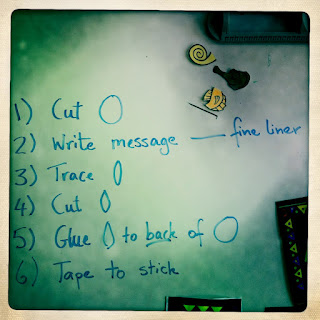 1) Cut
2) Write message — fine liner
3) Trace
4) Cut
5) Glue to back of
6) Tape to stick